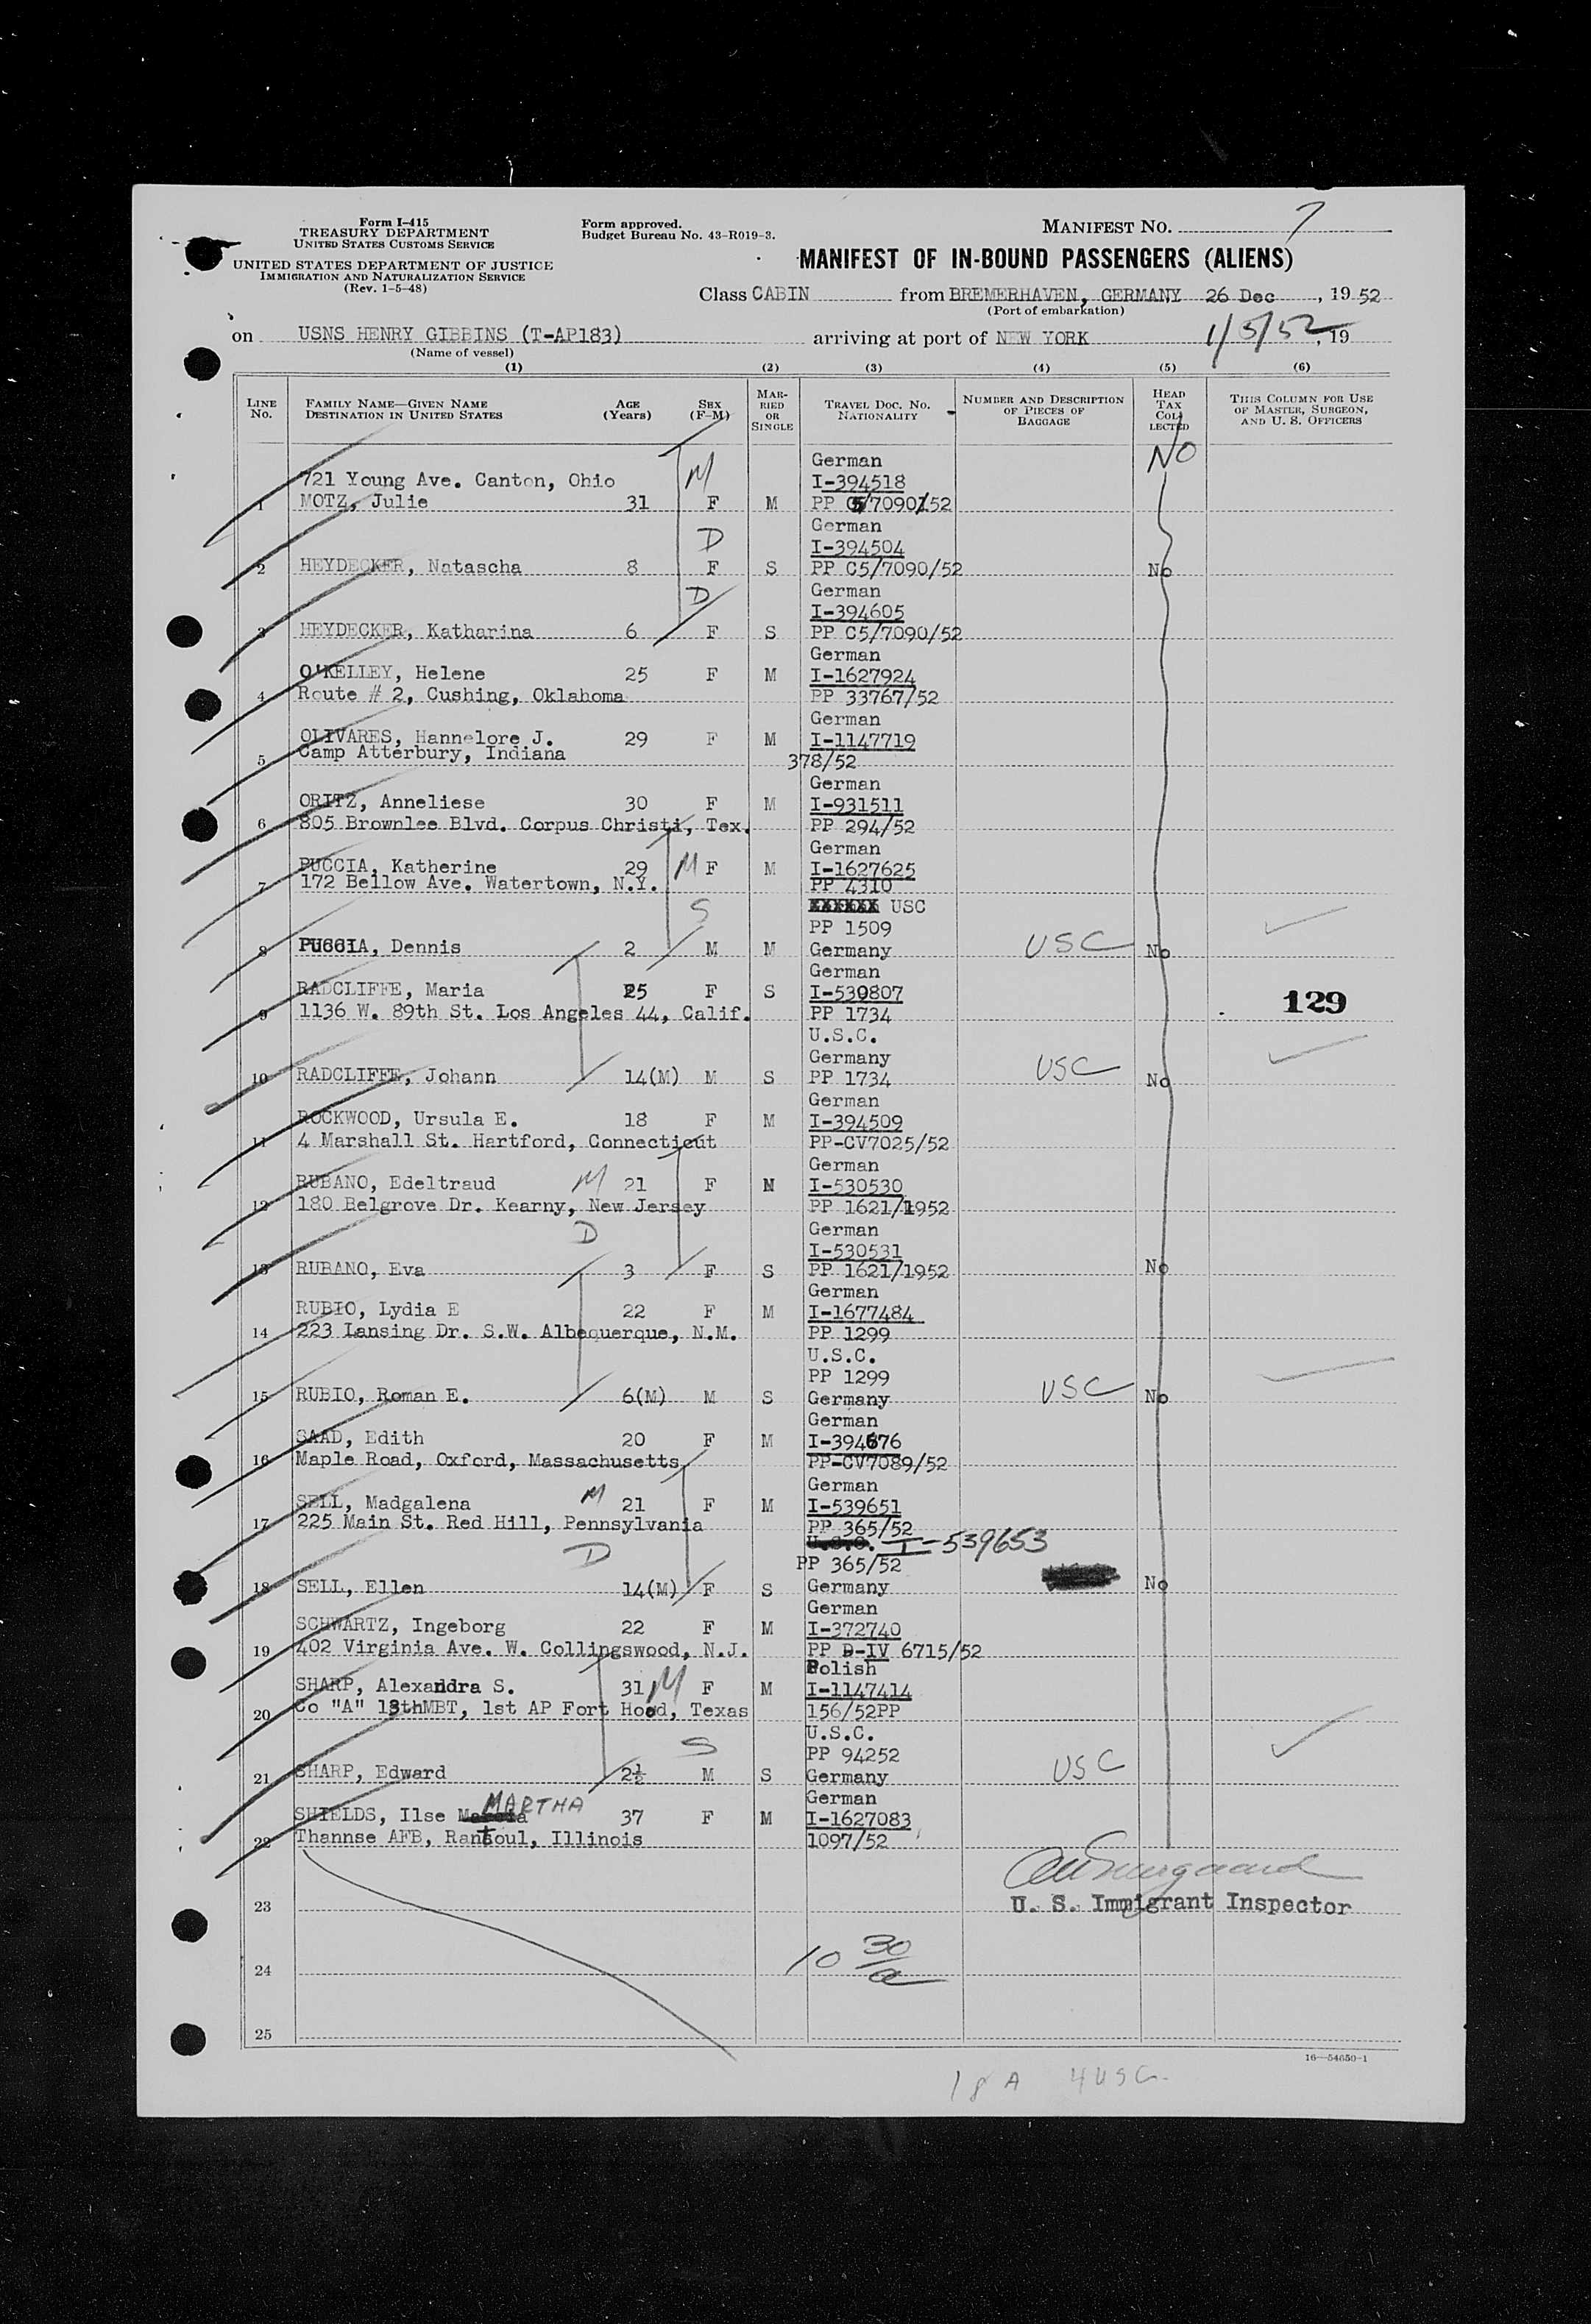 Form I-415
TREASURY DEPARTMENT
UNITED STATES CUSTOMS SERVICE
UNITED STATES DEPARTMENT OF JUSTICE
IMMIGRATION AND NATURALIZATION SERVICE
(Rev. 1-5-48)
Form approved.
Budget Bureau No. 43-R019-3.
MANIFEST NO. 7
MANIFEST OF IN-BOUND PASSENGERS (ALIENS)
Class CABIN from BREMERHAVEN, GERMANY 26 Dec, 19 52
(Port of embarkation)
on USNS HENRY GIBBINS (T-AP183) arriving at port of NEW YORK 1/5/52, 19
(Name of vessel)
(1) (2) (3) (4) (5) (6)
LINE No. FAMILY NAME—GIVEN NAME DESTINATION IN UNITED STATES AGE (Years) SEX (F-M) MARRIED OR SINGLE TRAVEL DOC. NO. NATIONALITY NUMBER AND DESCRIPTION OF PIECES OF BAGGAGE HEAD TAX COLLECTED THIS COLUMN FOR USE OF MASTER, SURGEON, AND U. S. OFFICERS
German NO
721 Young Ave. Canton, Ohio M I-394518
1 MOTZ, Julie 31 F M PP C5/7090/52
German
D I-394504
2 HEYDECKER, Natascha 8 F S PP C5/7090/52 No
German
D I-394605
3 HEYDECKER, Katharina 6 F S PP C5/7090/52
German
O'KELLEY, Helene 25 F M I-1627924
4 Route # 2, Cushing, Oklahoma PP 33767/52
German
OLIVARES, Hannelore J. 29 F M I-1147719
5 Camp Atterbury, Indiana 378/52
German
ORITZ, Anneliese 30 F M I-931511
6 805 Brownlee Blvd. Corpus Christi, Tex. PP 294/52
German
PUCCIA, Katherine 29 M F M I-1627625
7 172 Bellow Ave. Watertown, N.Y. PP 4310
S XXXXXX USC
PP 1509
8 PUCCIA, Dennis 2 M M Germany USC No
German
RADCLIFFE, Maria 25 F S I-539807
9 1136 W. 89th St. Los Angeles 44, Calif. PP 1734 129
U.S.C.
Germany
10 RADCLIFFE, Johann 14(M) M S PP 1734 USC No
German
ROCKWOOD, Ursula E. 18 F M I-394509
11 4 Marshall St. Hartford, Connecticut PP-CV7025/52
German
RUBANO, Edeltraud M 21 F M I-530530
12 180 Belgrove Dr. Kearny, New Jersey PP 1621/1952
D German
I-530531
13 RUBANO, Eva 3 F S PP 1621/1952 No
German
RUBIO, Lydia E 22 F M I-1677484
14 223 Lansing Dr. S.W. Albequerque, N.M. PP 1299
U.S.C.
PP 1299
15 RUBIO, Roman E. 6(M) M S Germany USC No
German
SAAD, Edith 20 F M I-394676
16 Maple Road, Oxford, Massachusetts PP-CV7089/52
German
SELL, Madgalena M 21 F M I-539651
17 225 Main St. Red Hill, Pennsylvania PP 365/52
U.S.C. I-539653
D PP 365/52
18 SELL, Ellen 14(M) F S Germany No
German
SCHWARTZ, Ingeborg 22 F M I-372740
19 402 Virginia Ave. W. Collingswood, N.J. PP D-IV 6715/52
Polish
SHARP, Alexandra S. 31 M F M I-1147414
20 Co "A" 13thMBT, 1st AP Fort Hood, Texas 156/52PP
U.S.C.
S PP 94252
21 SHARP, Edward 2½ M S Germany USC
MARTHA German
SHIELDS, Ilse 37 F M I-1627083
22 Thannse AFB, Rantoul, Illinois 1097/52
23 U. S. Immigrant Inspector
24 10 30/a
25
16—54650-1
18 A 4 USC